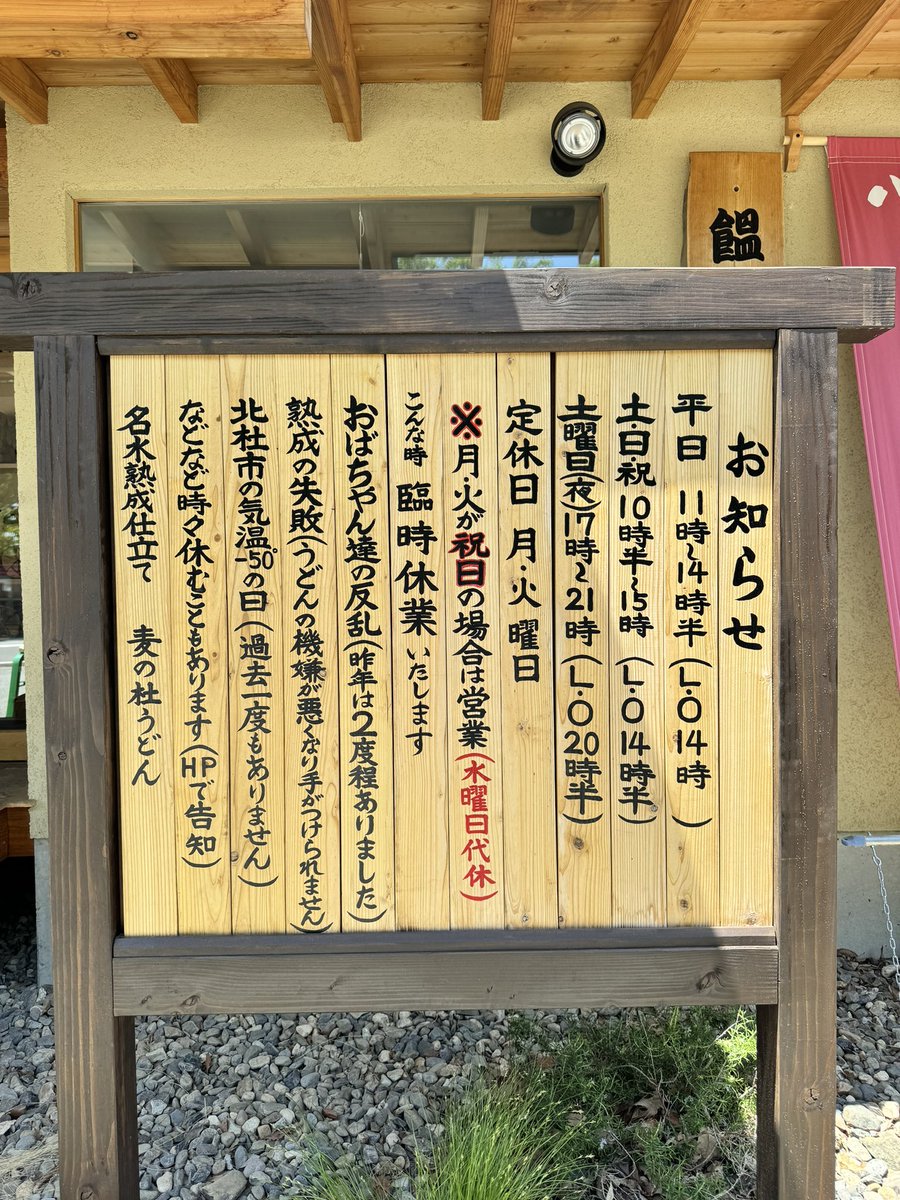 お知らせ
平日 11時～14時半(L.O 14時)
土・日・祝 10時半～15時(L.O 14時半)
土曜日(夜)17時～21時(L.O 20時半)
定休日 月・火曜日
※月・火が祝日の場合は営業(水曜日代休)
こんな時 臨時休業いたします
おばちゃん達の反乱(昨年は2度程ありました)
熟成の失敗(うどんの機嫌が悪くなり手がつけられません)
北杜市の気温-50°の日(過去一度もありません)
などなど時々休むこともあります(HPで告知)
名水熟成仕立て 麦の杜うどん
饂